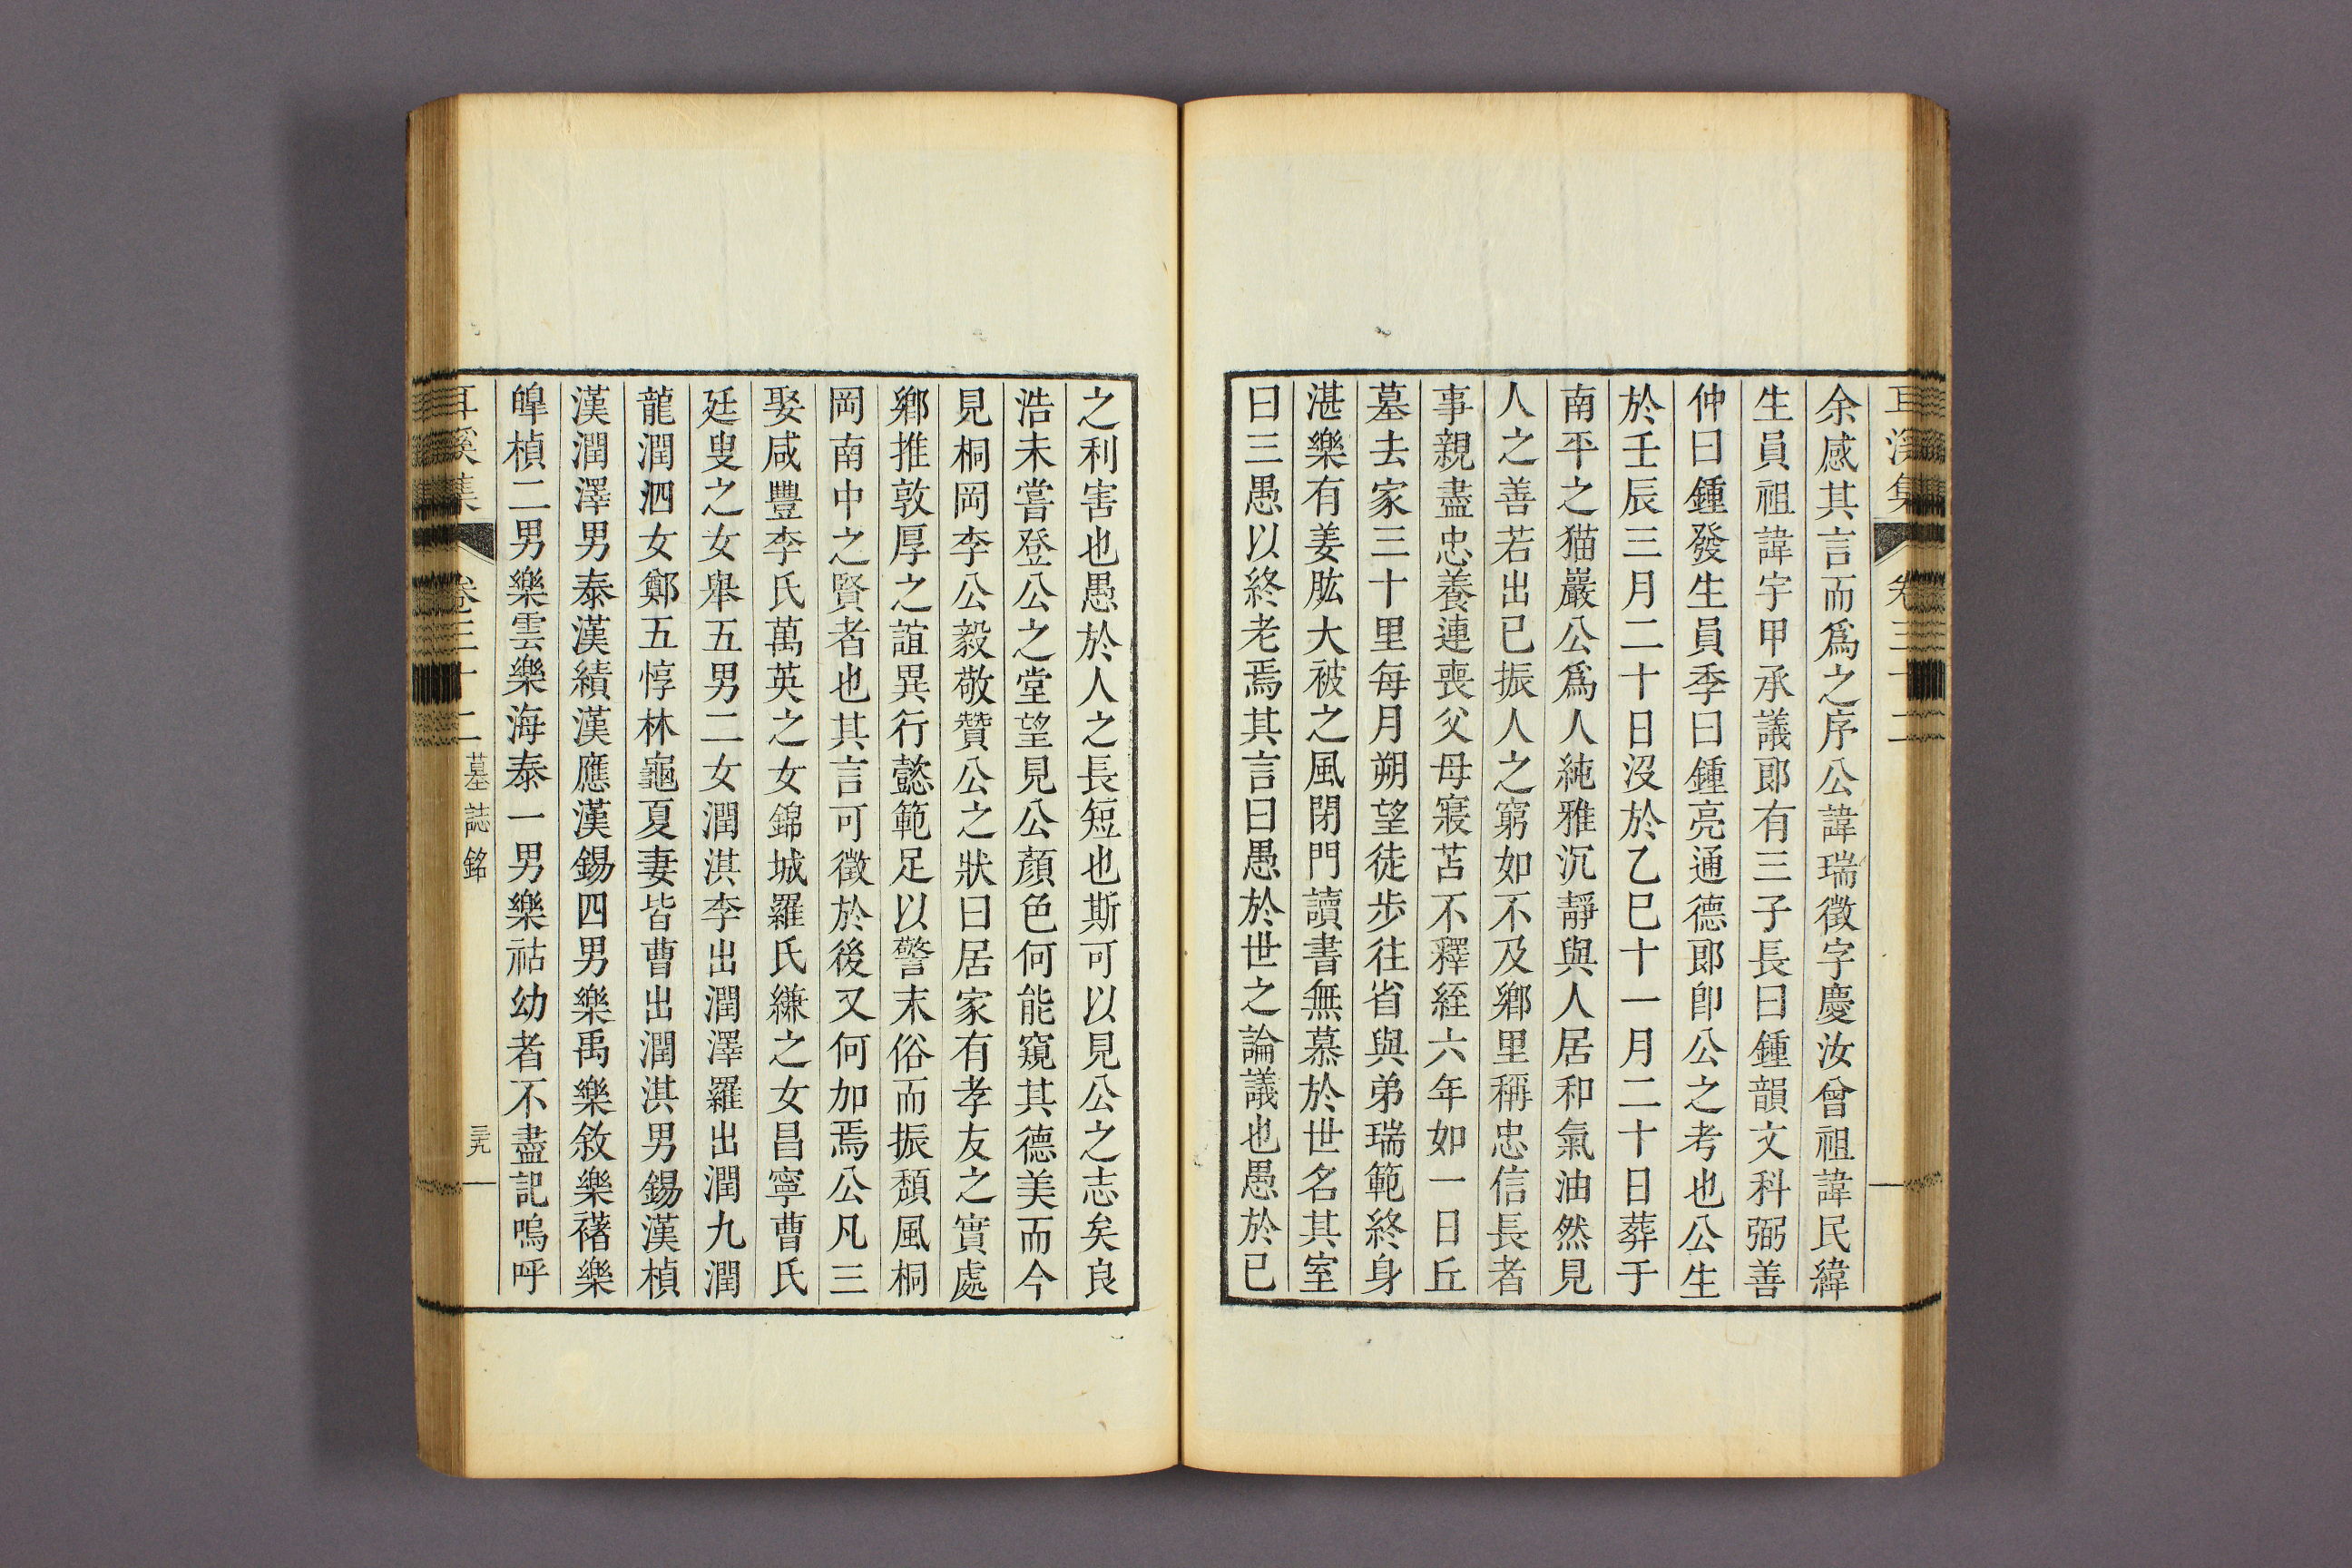 余感其言而爲之序公諱瑞徵字慶汝曾祖諱民緯
生員祖諱宇甲承議郎有三子長曰鍾韻文科弼善
仲曰鍾發生員季曰鍾亮通德郎卽公之考也公生
於壬辰三月二十日沒於乙巳十一月二十日葬于
南平之猫巖公爲人純雅沉靜與人居和氣油然見
人之善若出已振人之窮如不及鄕里稱忠信長者
事親盡忠養連喪父母寢苫不釋絰六年如一日丘
墓去家三十里每月朔望徒步往省與弟瑞範終身
湛樂有姜肱大被之風閉門讀書無慕於世名其室
曰三愚以終老焉其言曰愚於世之論議也愚於已
之利害也愚於人之長短也斯可以見公之志矣良
浩未嘗登公之堂望見公顏色何能窺其德美而今
見桐岡李公毅敬贊公之狀曰居家有孝友之實處
鄕推敦厚之誼異行懿範足以警末俗而振頹風桐
岡南中之賢者也其言可徵於後又何加焉公凡三
娶咸豐李氏萬英之女錦城羅氏縑之女昌寧曹氏
廷叟之女舉五男二女潤淇李出潤澤羅出潤九潤
龍潤泗女鄭五惇林龜夏妻皆曹出潤淇男錫漢楨
漢潤澤男泰漢績漢應漢錫四男樂禹樂敘樂褚樂
皥楨二男樂雲樂海泰一男樂祜幼者不盡記嗚呼
耳溪集 卷三十二 墓誌銘 三九